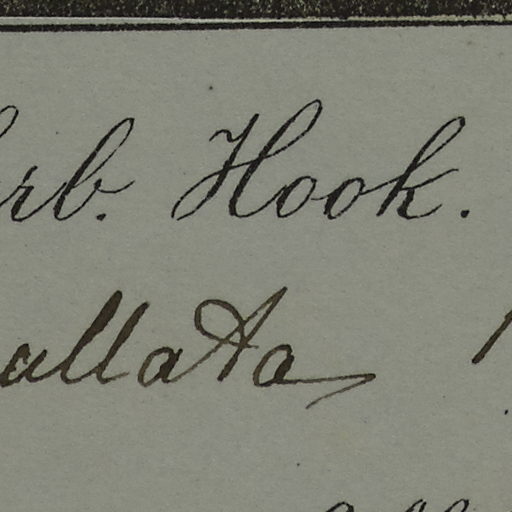 erb. Hook.
allata